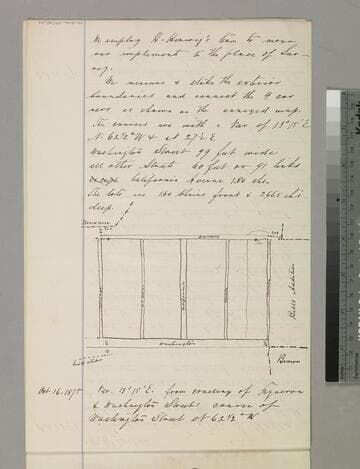 We employ H. Henwig's team to move
our implements to the place of Sur-
vey.
We measure & stake the exterior
boundaries and connect the 4 cor-
ners as shown on the annexed map.
The courses are with a Var of 13° 15' E
N. 62½° W & N 27½ E
Washington Street 99 feet wide
all other Streets 60 feet or 91 links
except California Avenue 1.80 chs.
The lots are 1.80 chains front & 2,665 chs
deep.
Washington
Bells Addition
Brown
Oct. 16. 1875
Var. 13° 15' E. from crossing of Figueroa
& Washington Streets course of
Washington Street N 62½° W